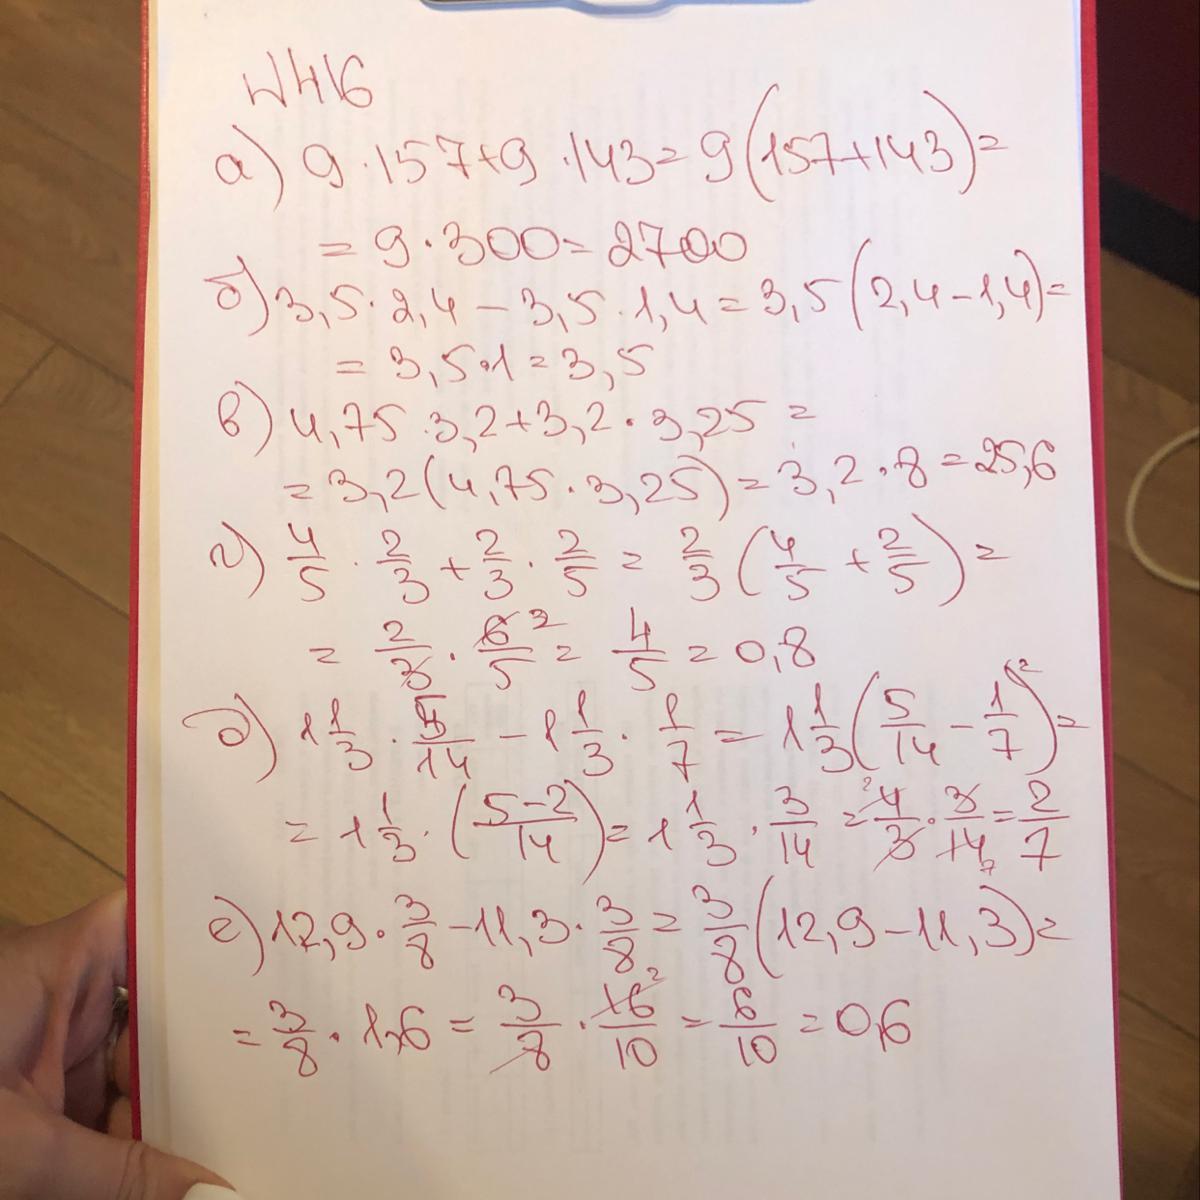 №416
а) 9·157+9·143=9(157+143)=
=9·300=2700
б) 3,5·2,4-3,5·1,4=3,5(2,4-1,4)=
=3,5·1=3,5
в) 4,75·3,2+3,2·3,25=
=3,2(4,75·3,25)=3,2·8=25,6
г) 4/5·2/3+2/3·2/5=2/3(4/5+2/5)=
=2/3·6/5 2=4/5=0,8
д) 1 1/3·5/14-1 1/3·1/7=1 1/3(5/14-1/7 2)=
=1 1/3·(5-2/14)=1 1/3·3/14=2 4/3·3/14 7=2/7
е) 12,9·3/8-11,3·3/8=3/8(12,9-11,3)=
=3/8·1,6=3/8·16 2/10=6/10=0,6